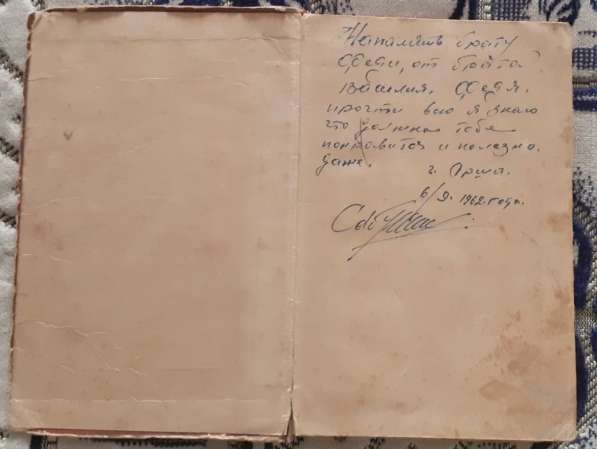 На память брату
Феди, от брата
Василия, Федя,
прочти всю я знаю
что должна тебе
понравится и полезно
даже.
г. Орша.
6/IX. 1962 года.